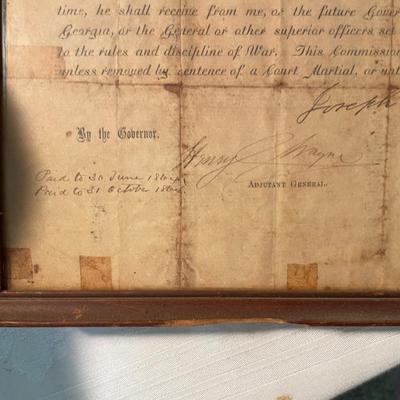 time, he shall receive from me, or the future Gover
Georgia, or the General or other superior officers set
to the rules and discipline of War. This Commission
unless removed by sentence of a Court Martial, or
Joseph
By the Governor.
Henry C Wayne
Adjutant General.
Paid to 30 June 1864
Paid to 31 October 1864